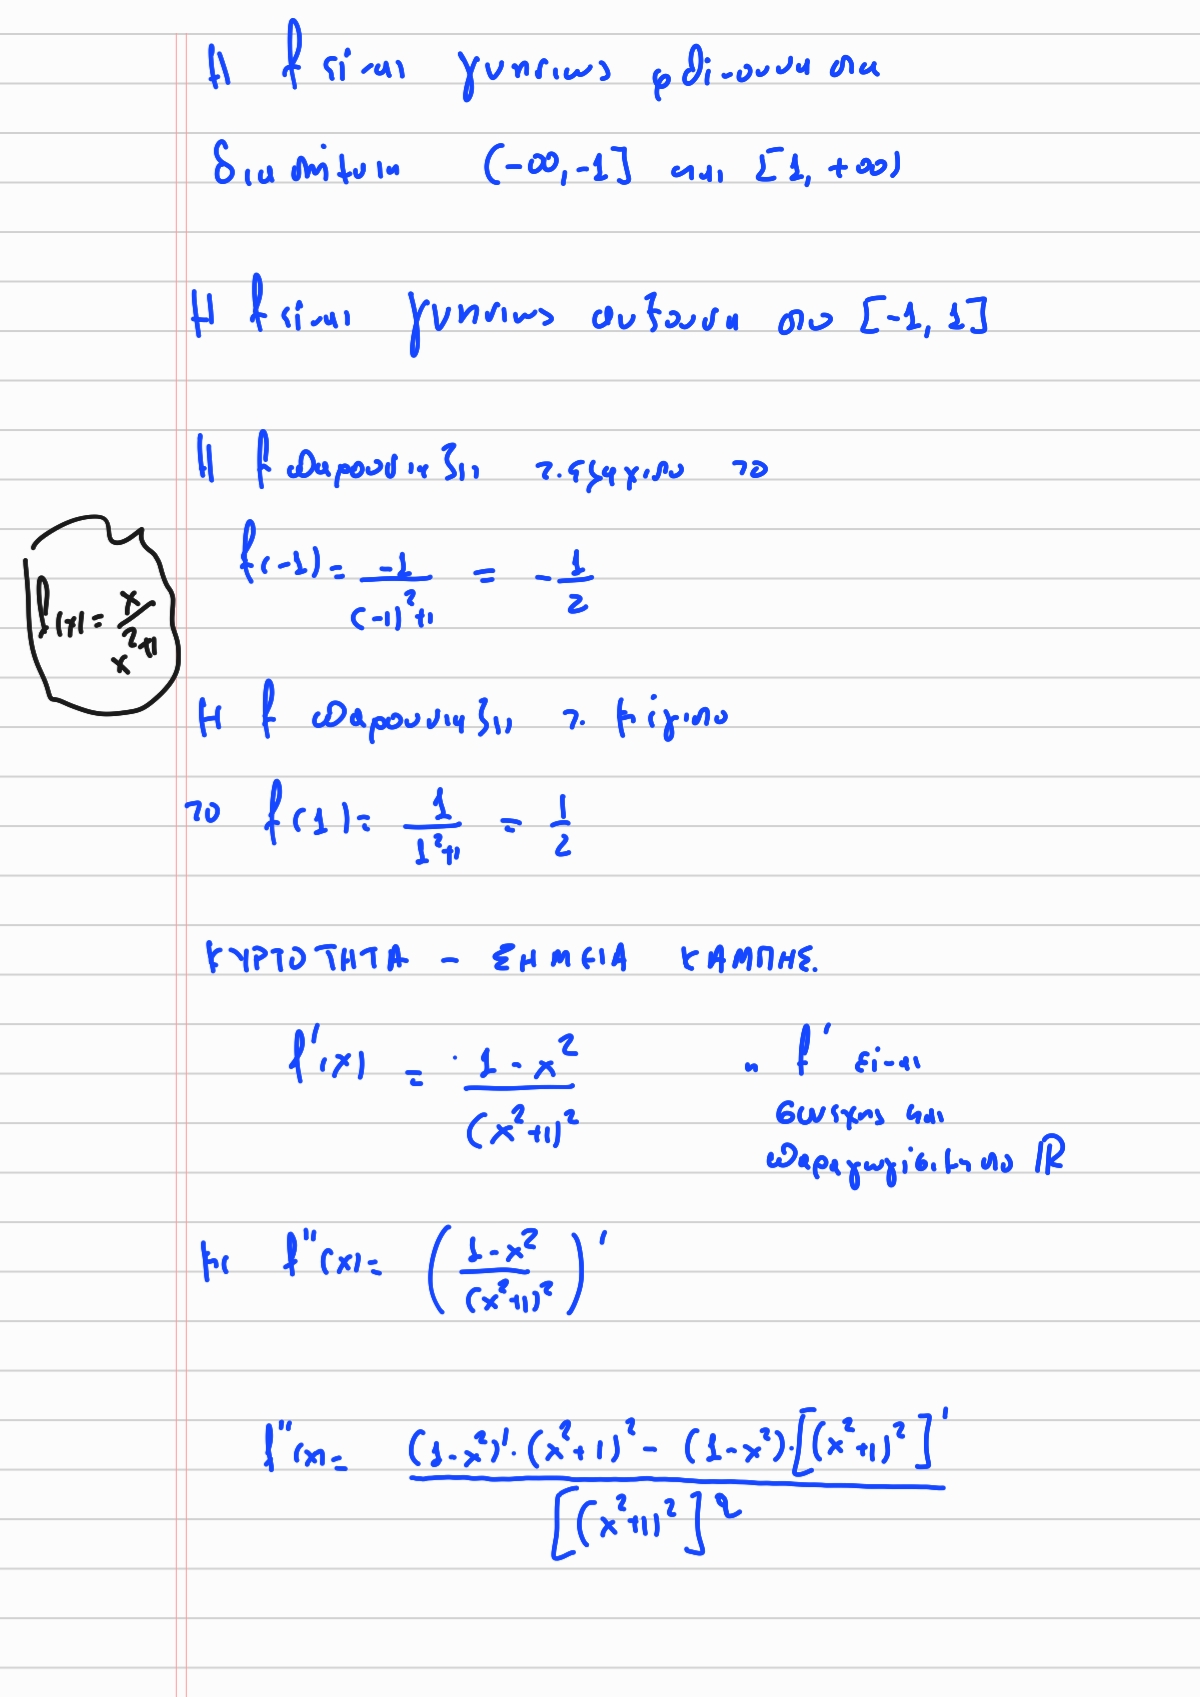 Η f είναι γνησίως φθίνουσα στα
διαστήματα (-∞, -1] και [1, +∞)
Η f είναι γνησίως αύξουσα στο [-1, 1]
Η f παρουσιάζει τ. ελάχιστο το
f(-1) = \frac{-1}{(-1)^2+1} = -\frac{1}{2}
f(x) = \frac{x}{x^2+1}
Η f παρουσιάζει τ. μέγιστο
το f(1) = \frac{1}{1^2+1} = \frac{1}{2}
ΚΥΡΤΟΤΗΤΑ - ΣΗΜΕΙΑ ΚΑΜΠΗΣ.
f'(x) = \frac{1-x^2}{(x^2+1)^2} η f' είναι
συνεχής και
παραγωγίσιμη στο ℝ
με f''(x) = \left(\frac{1-x^2}{(x^2+1)^2}\right)'
f''(x) = \frac{(1-x^2)'·(x^2+1)^2 - (1-x^2)·[(x^2+1)^2]'}{[(x^2+1)^2]^2}